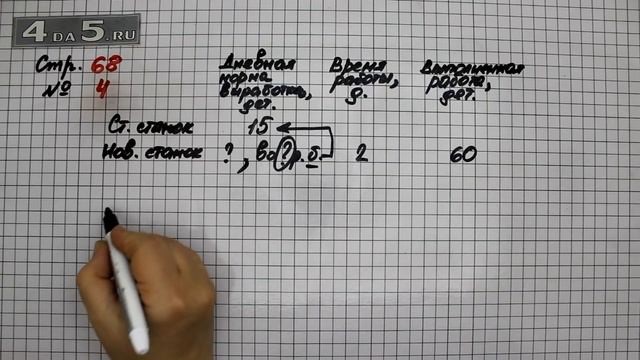 4 DA 5.RU
Стр. 68
№ 4
Дневная норма выработки, дет.
Время работы, д.
Выполненная работа, дет.
Ст. станок 15
Нов. станок ?, во ? р. б. 2 60